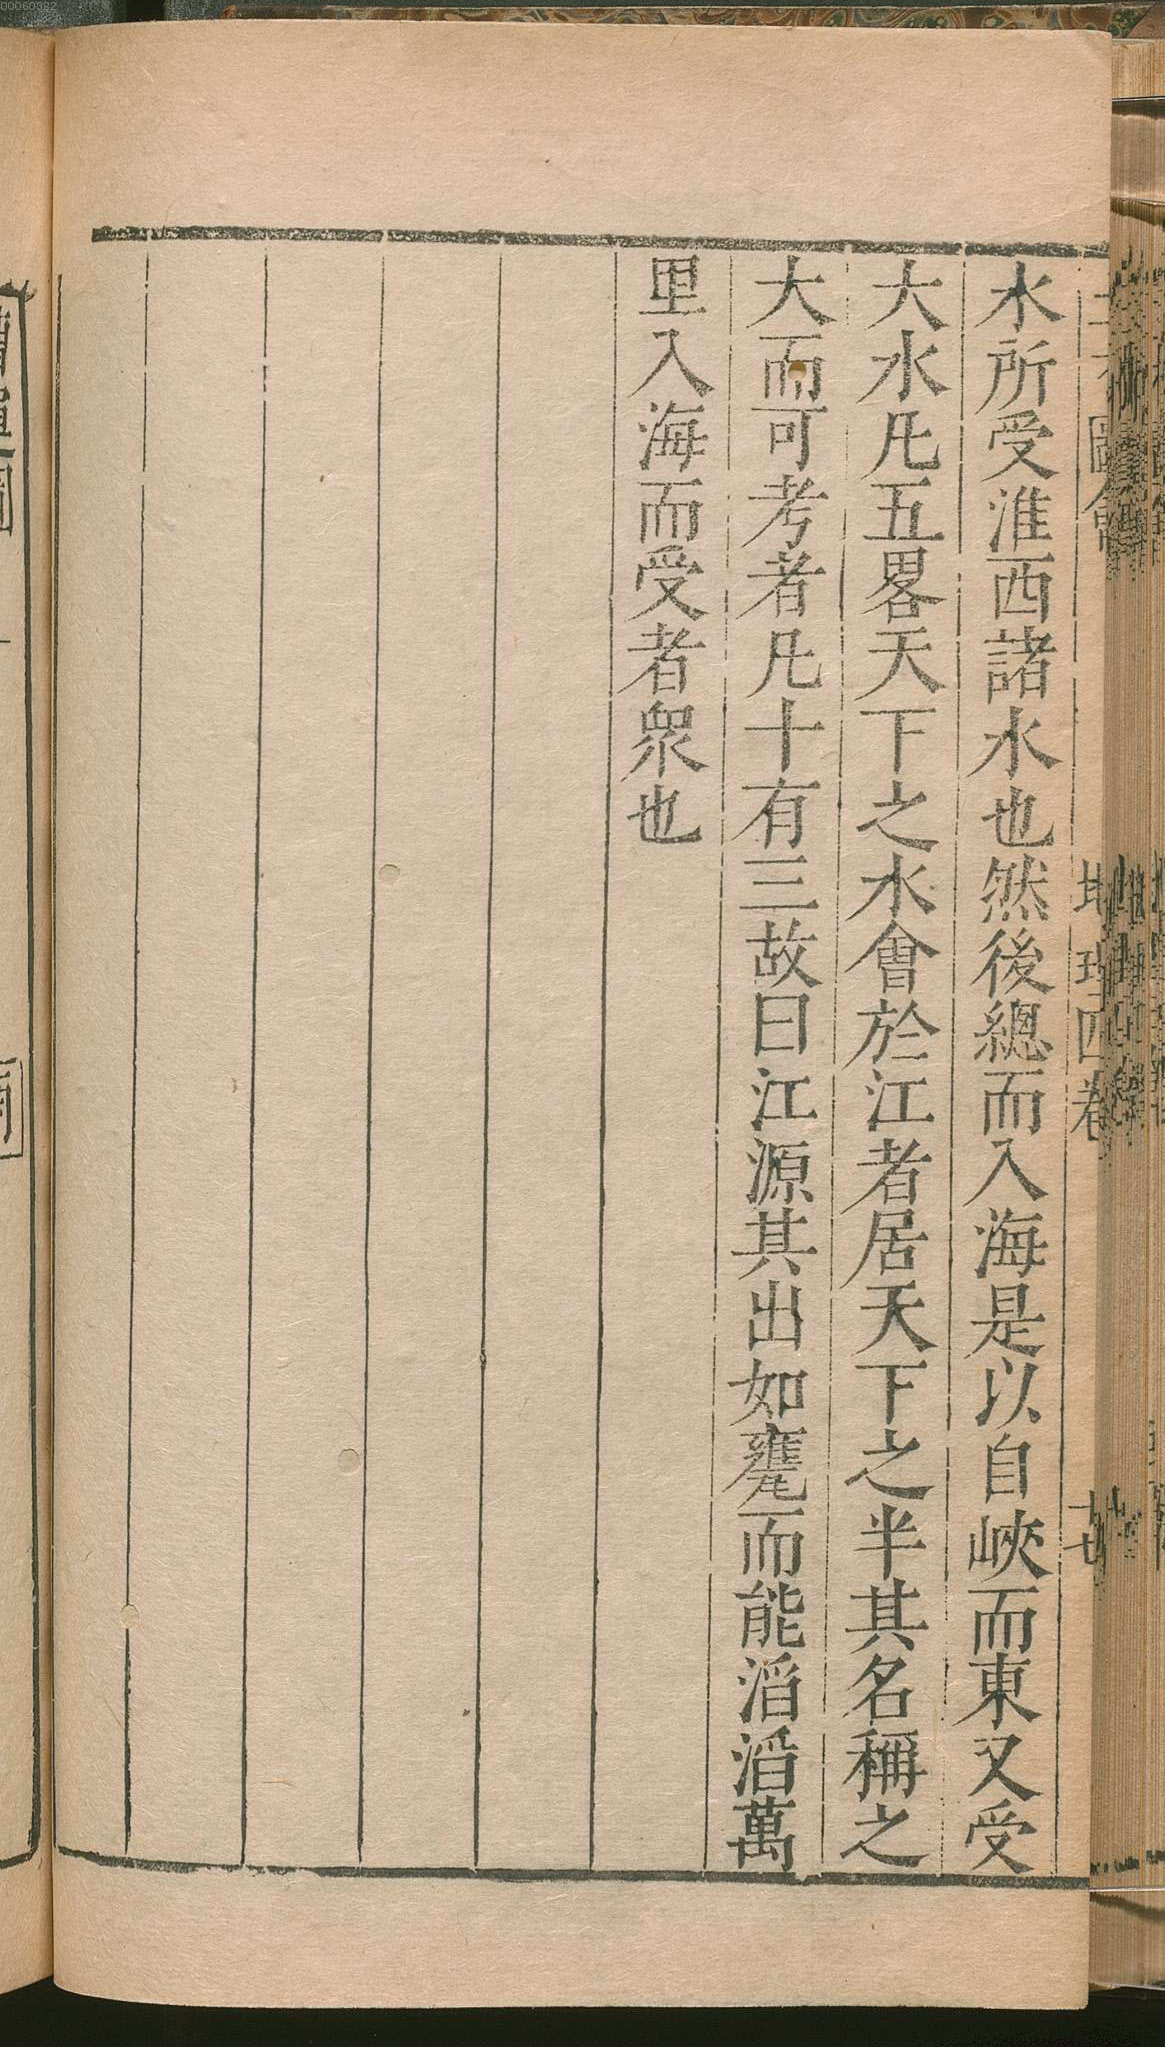 水所受淮西諸水也然後總而入海是以自峽而東又受
大水凡五畧天下之水會於江者居天下之半其名稱之
大而可考者凡十有三故曰江源其出如甕而能滔滔萬
里入海而受者衆也
圖會
地理四卷
00060322